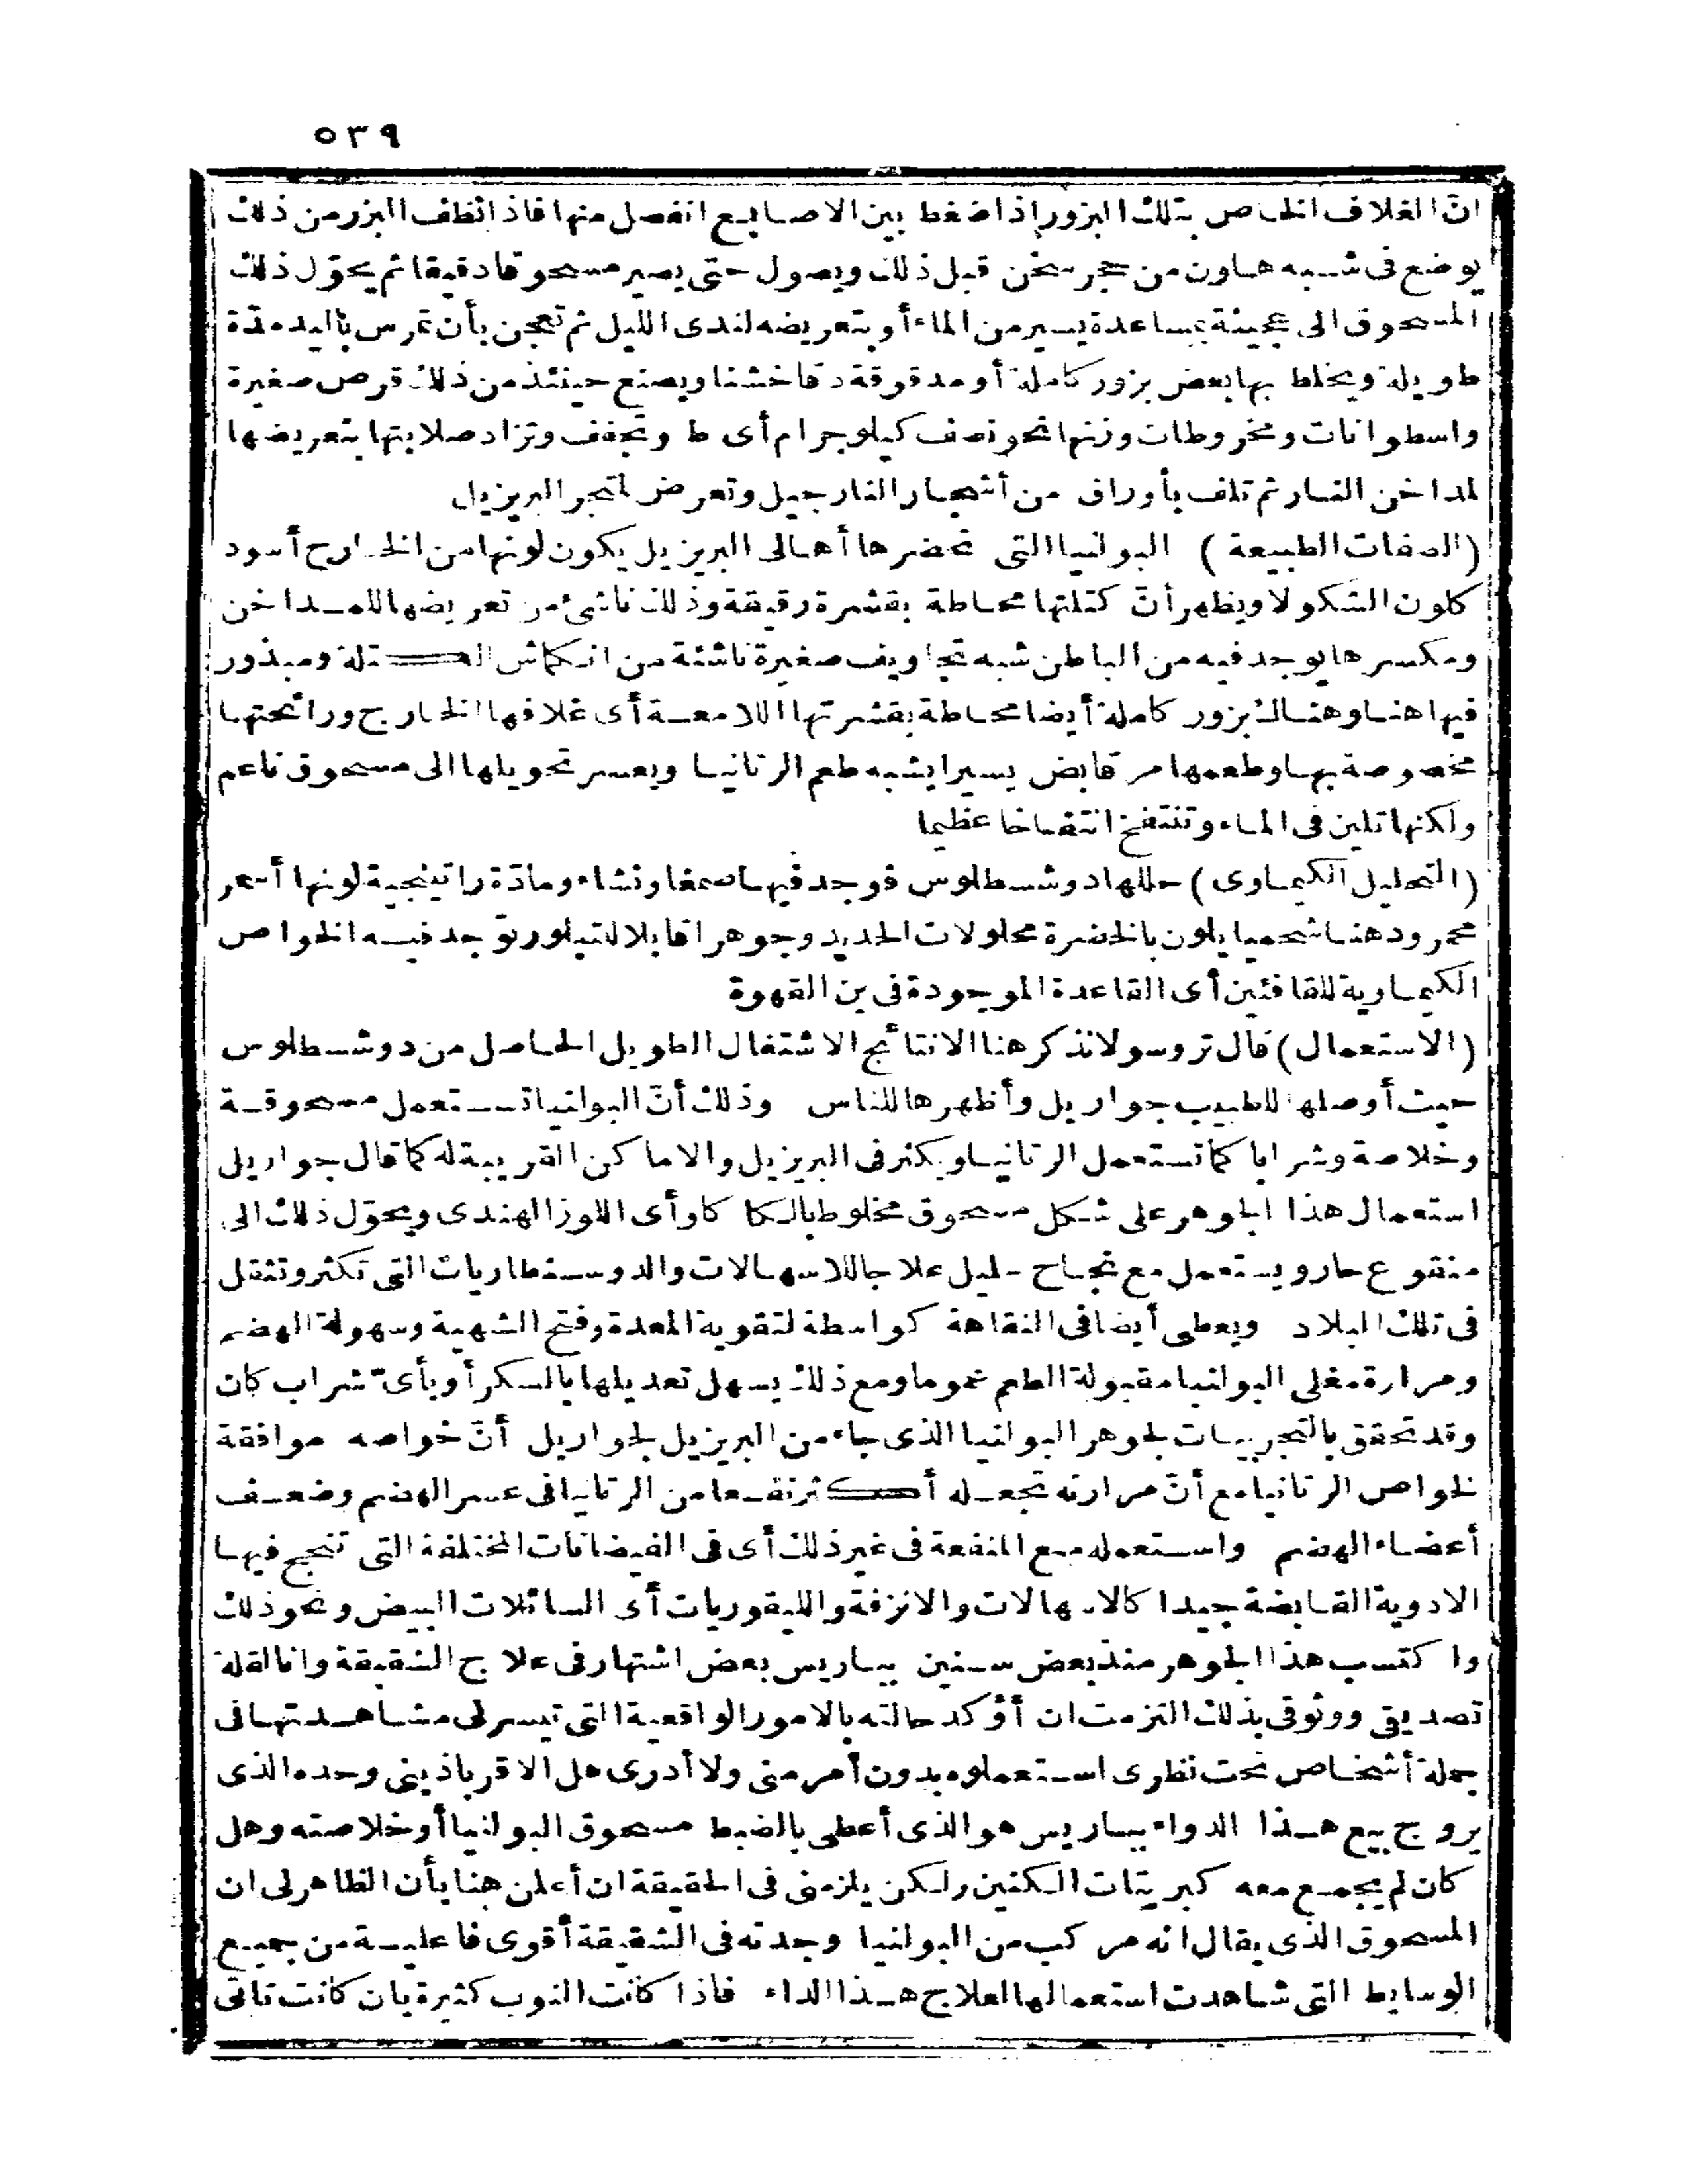 ٥٣٩
انّ الغلاف الخاص بتلك البزور اذا ضغط بين الاصابع انفصل منها فاذا نظف البزر من ذلك
يوضع فى شبه هاون من حجر سخن قبل ذلك ويصول حتى يصير مسحوقا دقيقا ثم يحوّل ذلك
المسحوق الى عجينة بمساعدة يسير من الماء أو بتعريضه لندى الليل ثم تعجن بأن تمرس باليد مدّة
طويلة ويخلط بها بعض بزور كاملة أو مدقوقة دقا خشنا ويصنع حينئذ من ذلك قرص صغيرة
واسطوانات ومخروطات وزنها نحو نصف كيلوجرام أى ط وتجفف وتزاد صلابتها بتعريضها
لمداخن النار ثم تلف بأوراق من أشجار النارجيل وتعرض لمتجر البريزيل
(الصفات الطبيعة) البولنيا التى تحضرها أهالى البريزيل يكون لونها من الخارج أسود
كلون الشكولا ويظهر أنّ كتلتها محاطة بقشرة رقيقة وذلك ناشئ من تعريضها للمداخن
ومكسرها يوجد فيه من الباطن شبه تجاويف صغيرة ناشئة من انكماش الكتلة ومبذور
فيها هنا وهناك بزور كاملة أيضا محاطة بقشرتها اللامعة أى غلافها الخارج ورائحتها
مخصوصة بها وطعمها مر قابض يسيرا يشبه طعم الرتانيا ويعسر تحويلها الى مسحوق ناعم
ولكنها تلين فى الماء وتنتفخ انتفاخا عظيما
(التحليل الكيماوى) حللها دوشسطلوس فوجد فيها صمغا ونشاء ومادّة راتينجية لونها أسمر
محمر ودهنا شحميا يلون بالخضرة محلولات الحديد وجوهرا قابلا للتبلور توجد فيه الخواص
الكيماوية للقافئين أى القاعدة الموجودة فى بن القهوة
(الاستعمال) قال تروسو لا نذكر هنا الا نتائج الاشتغال الطويل الحاصل من دوشسطلوس
حيث أوصلها للطبيب جواريل وأظهرها للناس وذلك أنّ البولنيا تستعمل مسحوقة
وخلاصة وشرابا كما تستعمل الرتانيا ويكثر فى البريزيل والاماكن القريبة له كما قال جواريل
استعمال هذا الجوهر على شكل مسحوق مخلوط بالكاكاو أى اللوز الهندى ويحوّل ذلك الى
منقوع حار ويستعمل مع نجاح جليل علاجا للاسهالات والدوسنطاريات التى تكثر وتثقل
فى تلك البلاد ويعطى أيضا فى النقاهة كواسطة لتقوية المعدة وفتح الشهية وسهولة الهضم
ومرارة مغلى البولنيا مقبولة الطعم عموما ومع ذلك يسهل تعديلها بالسكر أو بأىّ شراب كان
وقد تحقق بالتجربيات لجوهر البولنيا الذى جاء من البريزيل لجواريل أنّ خواصه موافقة
لخواص الرتانيا مع أنّ مرارته تجعله أكثر نفعا من الرتانيا فى عسر الهضم وضعف
أعضاء الهضم واستعمله مع المنفعة فى غير ذلك أى فى الفيضانات المختلفة التى تنجح فيها
الادوية القابضة جيدا كالاسهالات والانزفة والليقوريات أى السائلات البيض ونحو ذلك
واكتسب هذا الجوهر منذ بعض سنين بباريس بعض اشتهار فى علاج الشقيقة وانا لقلة
تصديقى ووثوقى بذلك التزمت ان أؤكد حالته بالامور الواقعية التى تيسر لى مشاهدتها فى
جملة أشخاص تحت نظرى استعملوه بدون أمر منى ولا أدرى هل الاقرباذينى وحده الذى
يروج بيع هذا الدواء بباريس هو الذى أعطى بالضبط مسحوق البولنيا أو خلاصته وهل
كان لم يجمع معه كبريتات الكنين ولكن يلزمنى فى الحقيقة ان أعلن هنا بأن الظاهر لى ان
المسحوق الذى يقال انه مركب من البولنيا وجدته فى الشقيقة أقوى فاعلية من جميع
الوسايط التى شاهدت استعمالها لعلاج هذا الداء فاذا كانت النوب كثيرة بان كانت تاتى